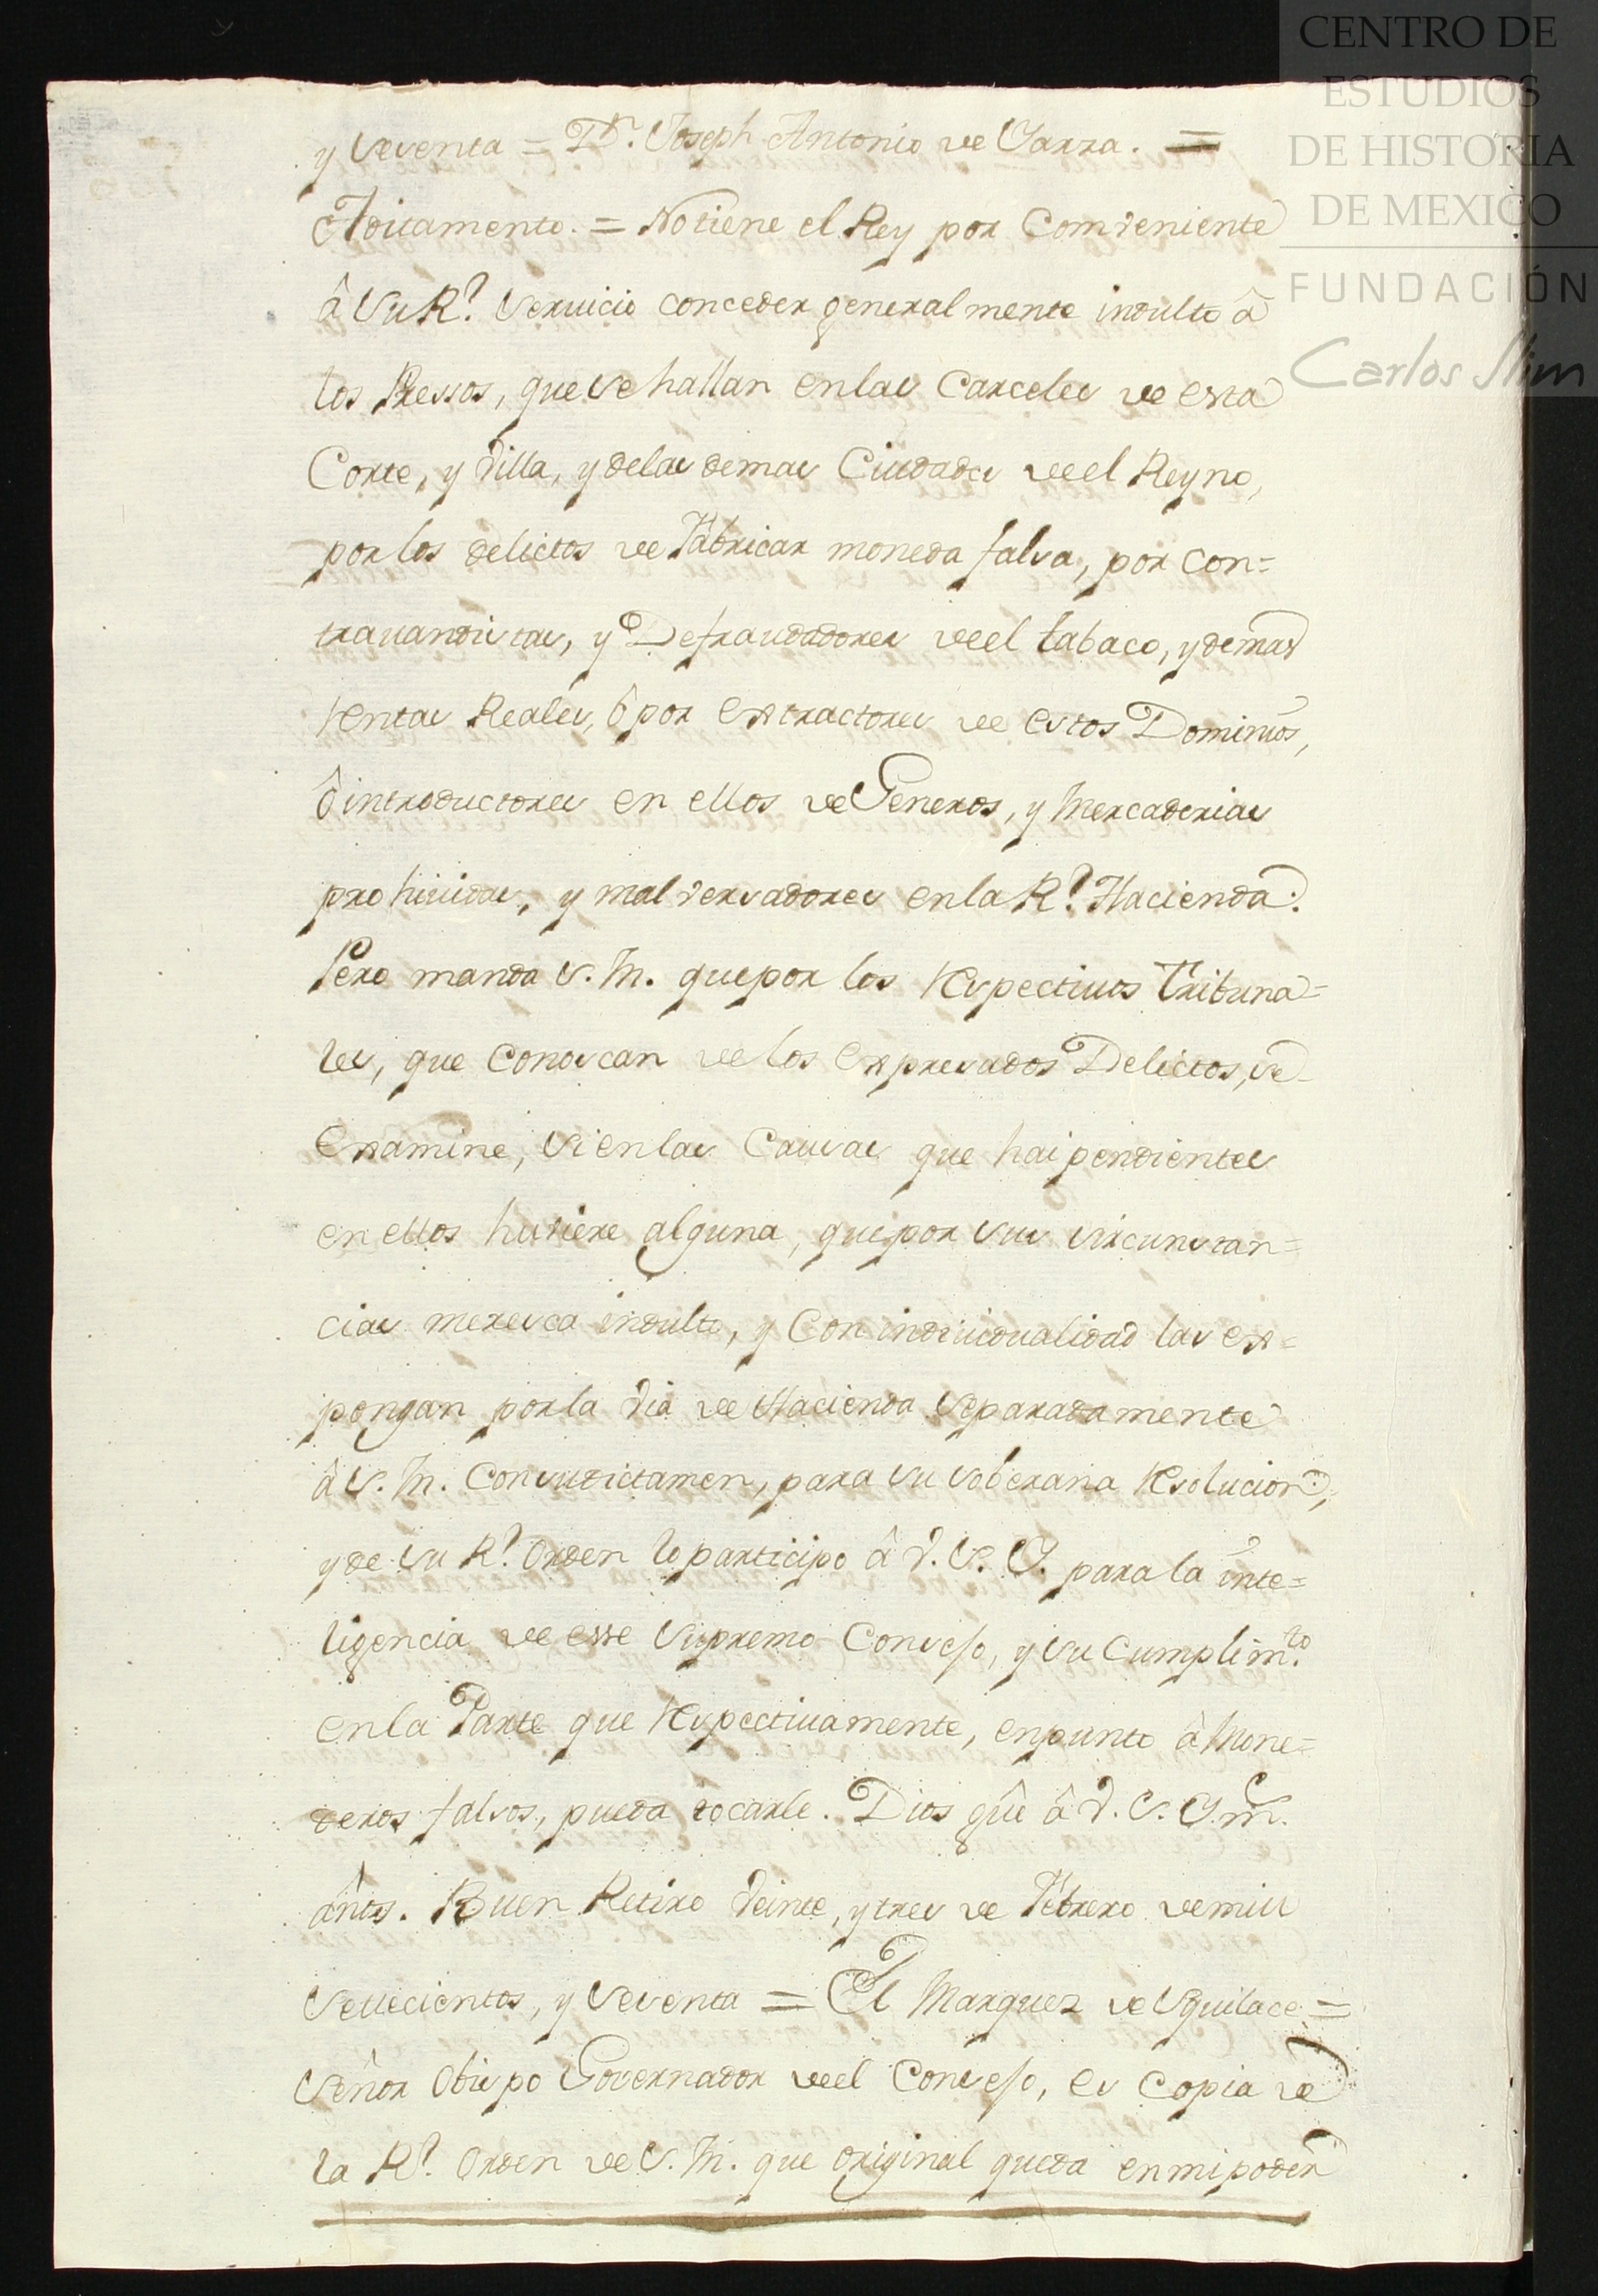 y sesenta = Dn. Joseph Antonio de Yarza. =
Aditamento. = No tiene el Rey por Comveniente
â Su Rl. Servicio conceder generalmente indulto â
los Pressos, que se hallan en las Carceles de esta
Corte, y Villa, y de las demas Ciudades de el Reyno,
por los delictos de Fabricar moneda falsa, por con=
travandistas, y Defraudadores de el tabaco, y demas
rentas Reales, ô por extractores de estos Dominios,
ô introductores en ellos de Generos, y Mercaderias
prohividas, y mal versadores en la Rl. Hacienda.
Pero manda S. M. que por los respectivos Tribuna=
les, que conoscan de los expresados Delictos, se
examine, si en las Causas que hai pendientes
en ellos huviere alguna, que por sus circunstan=
cias meresca indulto, y Con individualidad las ex=
pongan por la Via de Hacienda separadamente
â S. M. Con su dictamen, para su soberana resolucion,
y de su Rl. Orden lo participo â V. S. Y. para la inte=
ligencia de esse Supremo Consejo, y su Cumplim.to
en la Parte que respectivamente, en punto â Mone=
deros falsos, pueda tocarle. Dios gûe â V. S. Y. m̃s.
âños. Buen Retiro Veinte, y tres de Febrero de mill
Settecientos, y Sesenta = El Marquez de Squilace =
Señor Obispo Governador de el Consejo, es Copia de
la Rl. Orden de S. M. que original queda en mi poder
CENTRO DE
ESTUDIOS
DE HISTORIA
DE MEXICO
FUNDACIÓN
Carlos Slim